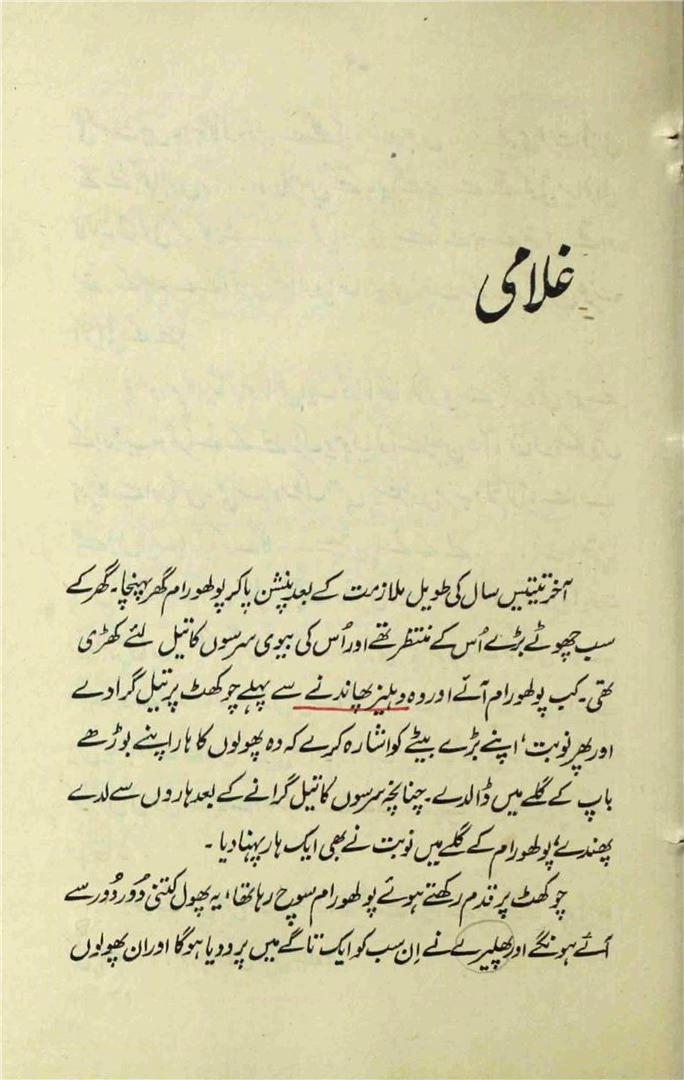 غلامی
آخر تینتیس سال کی طویل ملازمت کے بعد پنشن پا کر پولھو رام گھر پہنچا۔ گھر کے
سب چھوٹے بڑے اُس کے منتظر تھے اور اُس کی بیوی سرسوں کا تیل لئے کھڑی
تھی۔ کب پولھو رام آئے اور وہ دہلیز پھاندنے سے پہلے چوکھٹ پر تیل گرا دے
اور پھر نوبت، اپنے بڑے بیٹے کو اشارہ کرے کہ وہ پھولوں کا ہار اپنے بوڑھے
باپ کے گلے میں ڈالدے۔ چنانچہ سرسوں کا تیل گرانے کے بعد ہاروں سے لدے
پھندے، پولھو رام کے گلے میں نوبت نے بھی ایک ہار پہنا دیا۔
چوکھٹ پر قدم رکھتے ہوئے پولھو رام سوچ رہا تھا، یہ پھول کتنی دُور دُور سے
آئے ہونگے اور پھلیرے نے اِن سب کو ایک تاگے میں پرو دیا ہوگا اور ان پھولوں